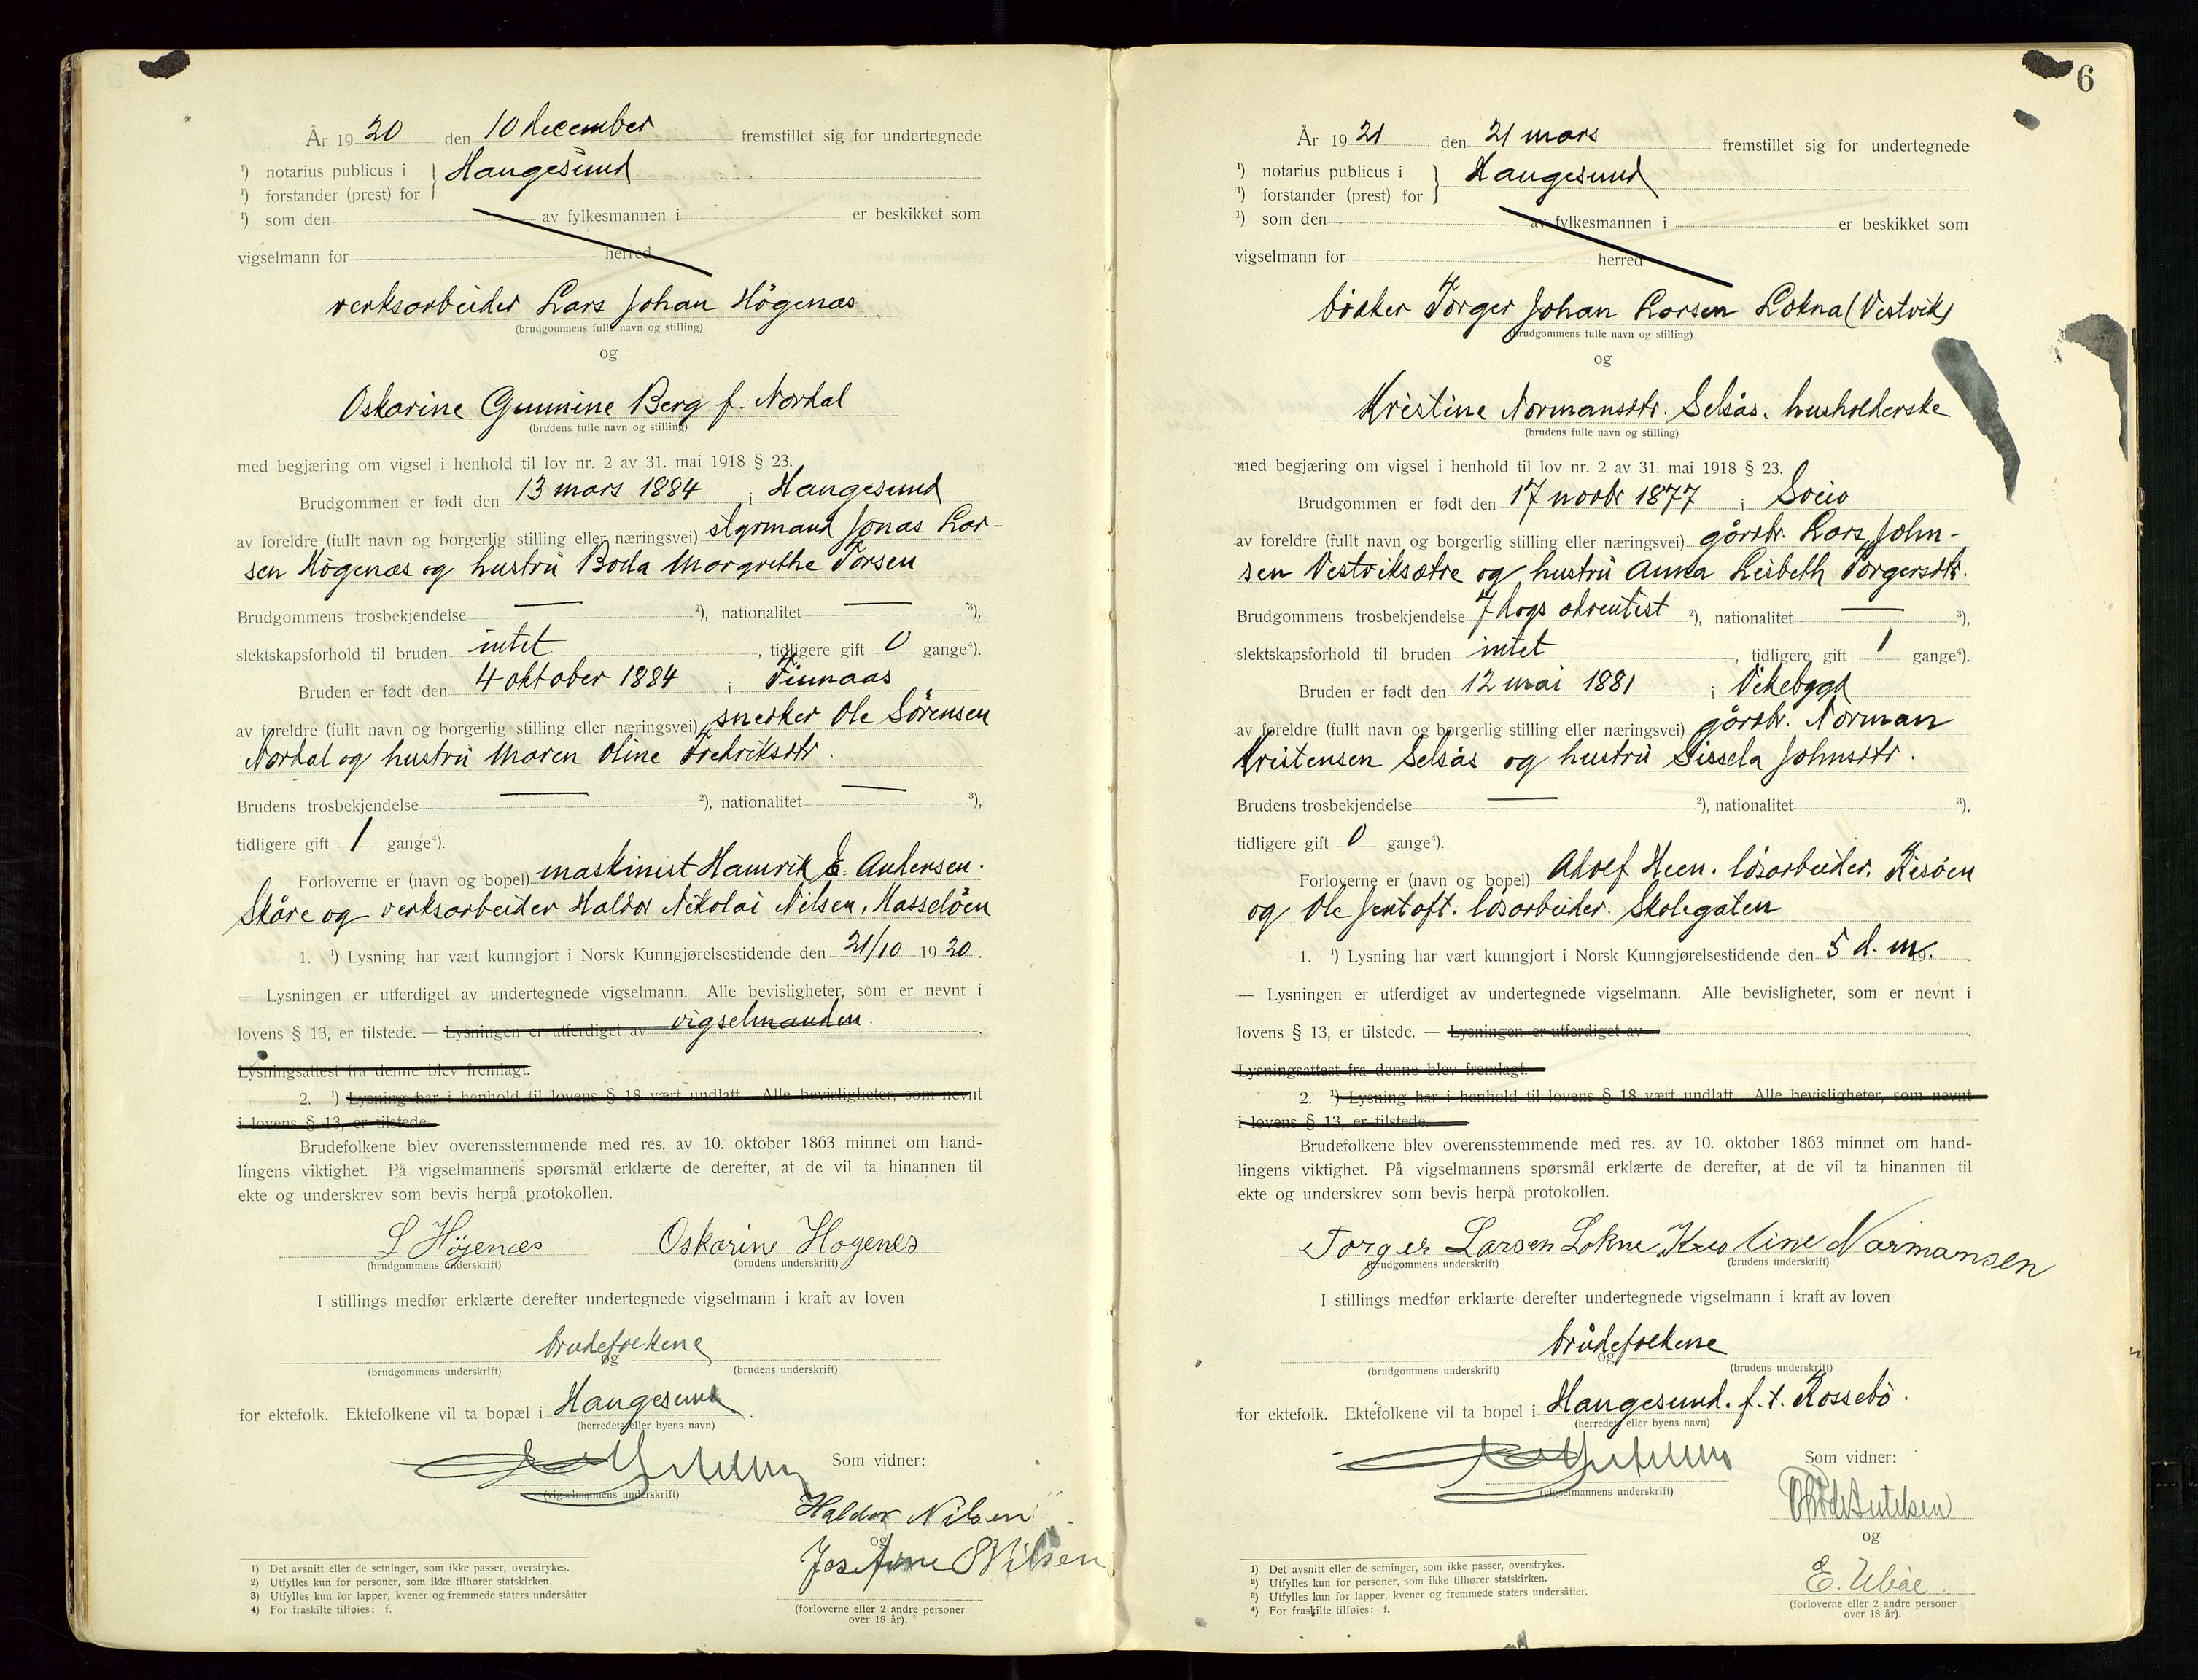 År 1920 den 10 december fremstillet sig for undertegnede
¹) notarius publicus i } Haugesund
¹) forstander (prest) for
¹) som den av fylkesmannen i er beskikket som
vigselmann for herred
verksarbeider Lars Johan Högenæs
(brudgommens fulle navn og stilling)
og
Oskarine Gunnine Berg f. Nordal
(brudens fulle navn og stilling)
med begjæring om vigsel i henhold til lov nr. 2 av 31. mai 1918 § 23.
Brudgommen er født den 13 mars 1884 i Haugesund
av foreldre (fullt navn og borgerlig stilling eller næringsvei) styrmand Jonas Lar-
sen Högenæs og hustru Boda Margrethe Torsen
Brudgommens trosbekjendelse — ²), nationalitet — ³),
slektskapsforhold til bruden intet, tidligere gift 0 gange⁴).
Bruden er født den 4 oktober 1884 i Finnaas
av foreldre (fullt navn og borgerlig stilling eller næringsvei) snerker Ole Sörensen
Nordal og hustru Maren Oline Fredriksdtr.
Brudens trosbekjendelse — ²), nationalitet — ³),
tidligere gift 1 gange⁴).
Forloverne er (navn og bopel) maskinist Hamrik E. Andersen.
Skåre og verksarbeider Haldor Nikolai Nilsen, Hasselöen
1. ¹) Lysning har vært kunngjort i Norsk Kunngjørelsestidende den 21/10 1920.
— Lysningen er utferdiget av undertegnede vigselmann. Alle bevisligheter, som er nevnt i
lovens § 13, er tilstede. — Lysningen er utferdiget av vigselmanden.
Lysningsattest fra denne blev fremlagt.
2. ¹) Lysning har i henhold til lovens § 18 vært undlatt. Alle bevisligheter, som nevnt
i lovens § 13, er tilstede.
Brudefolkene blev overensstemmende med res. av 10. oktober 1863 minnet om hand-
lingens viktighet. På vigselmannens spørsmål erklærte de derefter, at de vil ta hinannen til
ekte og underskrev som bevis herpå protokollen.
L Höjenæs Oskarine Hogenes
(brudgommens underskrift) (brudens underskrift)
I stillings medfør erklærte derefter undertegnede vigselmann i kraft av loven
brudefolkene
og
(brudgommens underskrift) (brudens underskrift)
for ektefolk. Ektefolkene vil ta bopæl i Haugesund.
(herredets eller byens navn)
Som vidner:
(vigselmannens underskrift)
Haldor Nilsen
og
Josefine S Nilsen
(forloverne eller 2 andre personer
over 18 år).
1) Det avsnitt eller de setninger, som ikke passer, overstrykes.
2) Utfylles kun for personer, som ikke tilhører statskirken.
3) Utfylles kun for lapper, kvener og fremmede staters undersåtter
4) For fraskilte tilføies: f.
6
År 1921 den 21 mars fremstillet sig for undertegnede
¹) notarius publicus i } Haugesund
¹) forstander (prest) for
¹) som den av fylkesmannen i er beskikket som
vigselmann for herred
böker Torger Johan Larsen Lokna (Vestvik)
(brudgommens fulle navn og stilling)
og
Kristine Normansdtr. Selsås. husholderske
(brudens fulle navn og stilling)
med begjæring om vigsel i henhold til lov nr. 2 av 31. mai 1918 § 23.
Brudgommen er født den 17 novbr 1877 i Sveio
av foreldre (fullt navn og borgerlig stilling eller næringsvei) gårdbr. Lars John-
sen Vestviksætre og hustru Anna Lisbeth Torgersdtr.
Brudgommens trosbekjendelse 7 dags adventist ²), nationalitet — ³),
slektskapsforhold til bruden intet, tidligere gift 1 gange⁴).
Bruden er født den 12 mai 1881 i Vikebygd
av foreldre (fullt navn og borgerlig stilling eller næringsvei) gårdbr. Norman
Kristensen Selsås og hustru Sissela Johnsdtr.
Brudens trosbekjendelse — ²), nationalitet ³),
tidligere gift 0 gange⁴).
Forloverne er (navn og bopel) Adolf Heen. lösarbeider. Risöen
og Ole Jentoft. lösarbeider. Skolegaten
1. ¹) Lysning har vært kunngjort i Norsk Kunngjørelsestidende den 5 d. m.
— Lysningen er utferdiget av undertegnede vigselmann. Alle bevisligheter, som er nevnt i
lovens § 13, er tilstede. — Lysningen er utferdiget av
Lysningsattest fra denne blev fremlagt.
2. ¹) Lysning har i henhold til lovens § 18 vært undlatt. Alle bevisligheter, som nevnt
i lovens § 13, er tilstede.
Brudefolkene blev overensstemmende med res. av 10. oktober 1863 minnet om hand-
lingens viktighet. På vigselmannens spørsmål erklærte de derefter, at de vil ta hinannen til
ekte og underskrev som bevis herpå protokollen.
Torger Larsen Lokne. Kristine Normansen
(brudgommens underskrift) (brudens underskrift)
I stillings medfør erklærte derefter undertegnede vigselmann i kraft av loven
brudefolkene
og
(brudgommens underskrift) (brudens underskrift)
for ektefolk. Ektefolkene vil ta bopel i Haugesund. f. t. Rossebö.
(herredets eller byens navn)
Som vidner:
(vigselmannens underskrift)
og
E. Ubøe.
(forloverne eller 2 andre personer
over 18 år).
1) Det avsnitt eller de setninger, som ikke passer, overstrykes.
2) Utfylles kun for personer, som ikke tilhører statskirken.
3) Utfylles kun for lapper, kvener og fremmede staters undersåtter.
4) For fraskilte tilføies: f.